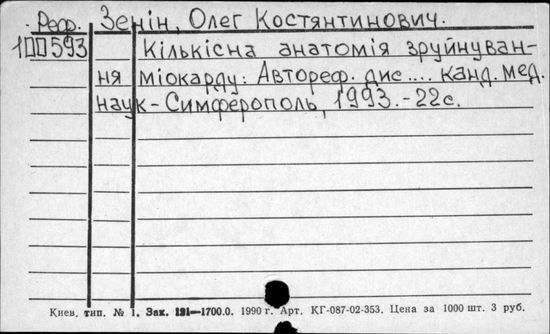 Реф. Зенін, Олег Костянтинович.
100593 Кількісна анатомія зруйнуван-
ня міокарду: Автореф. дис.... канд. мед.
наук - Симферополь, 1993. - 22с.
Киев. тип. № 1. Зак. 121—1700.0. 1990 г. Арт. КГ-087-02-353. Цена за 1000 шт. 3 руб.